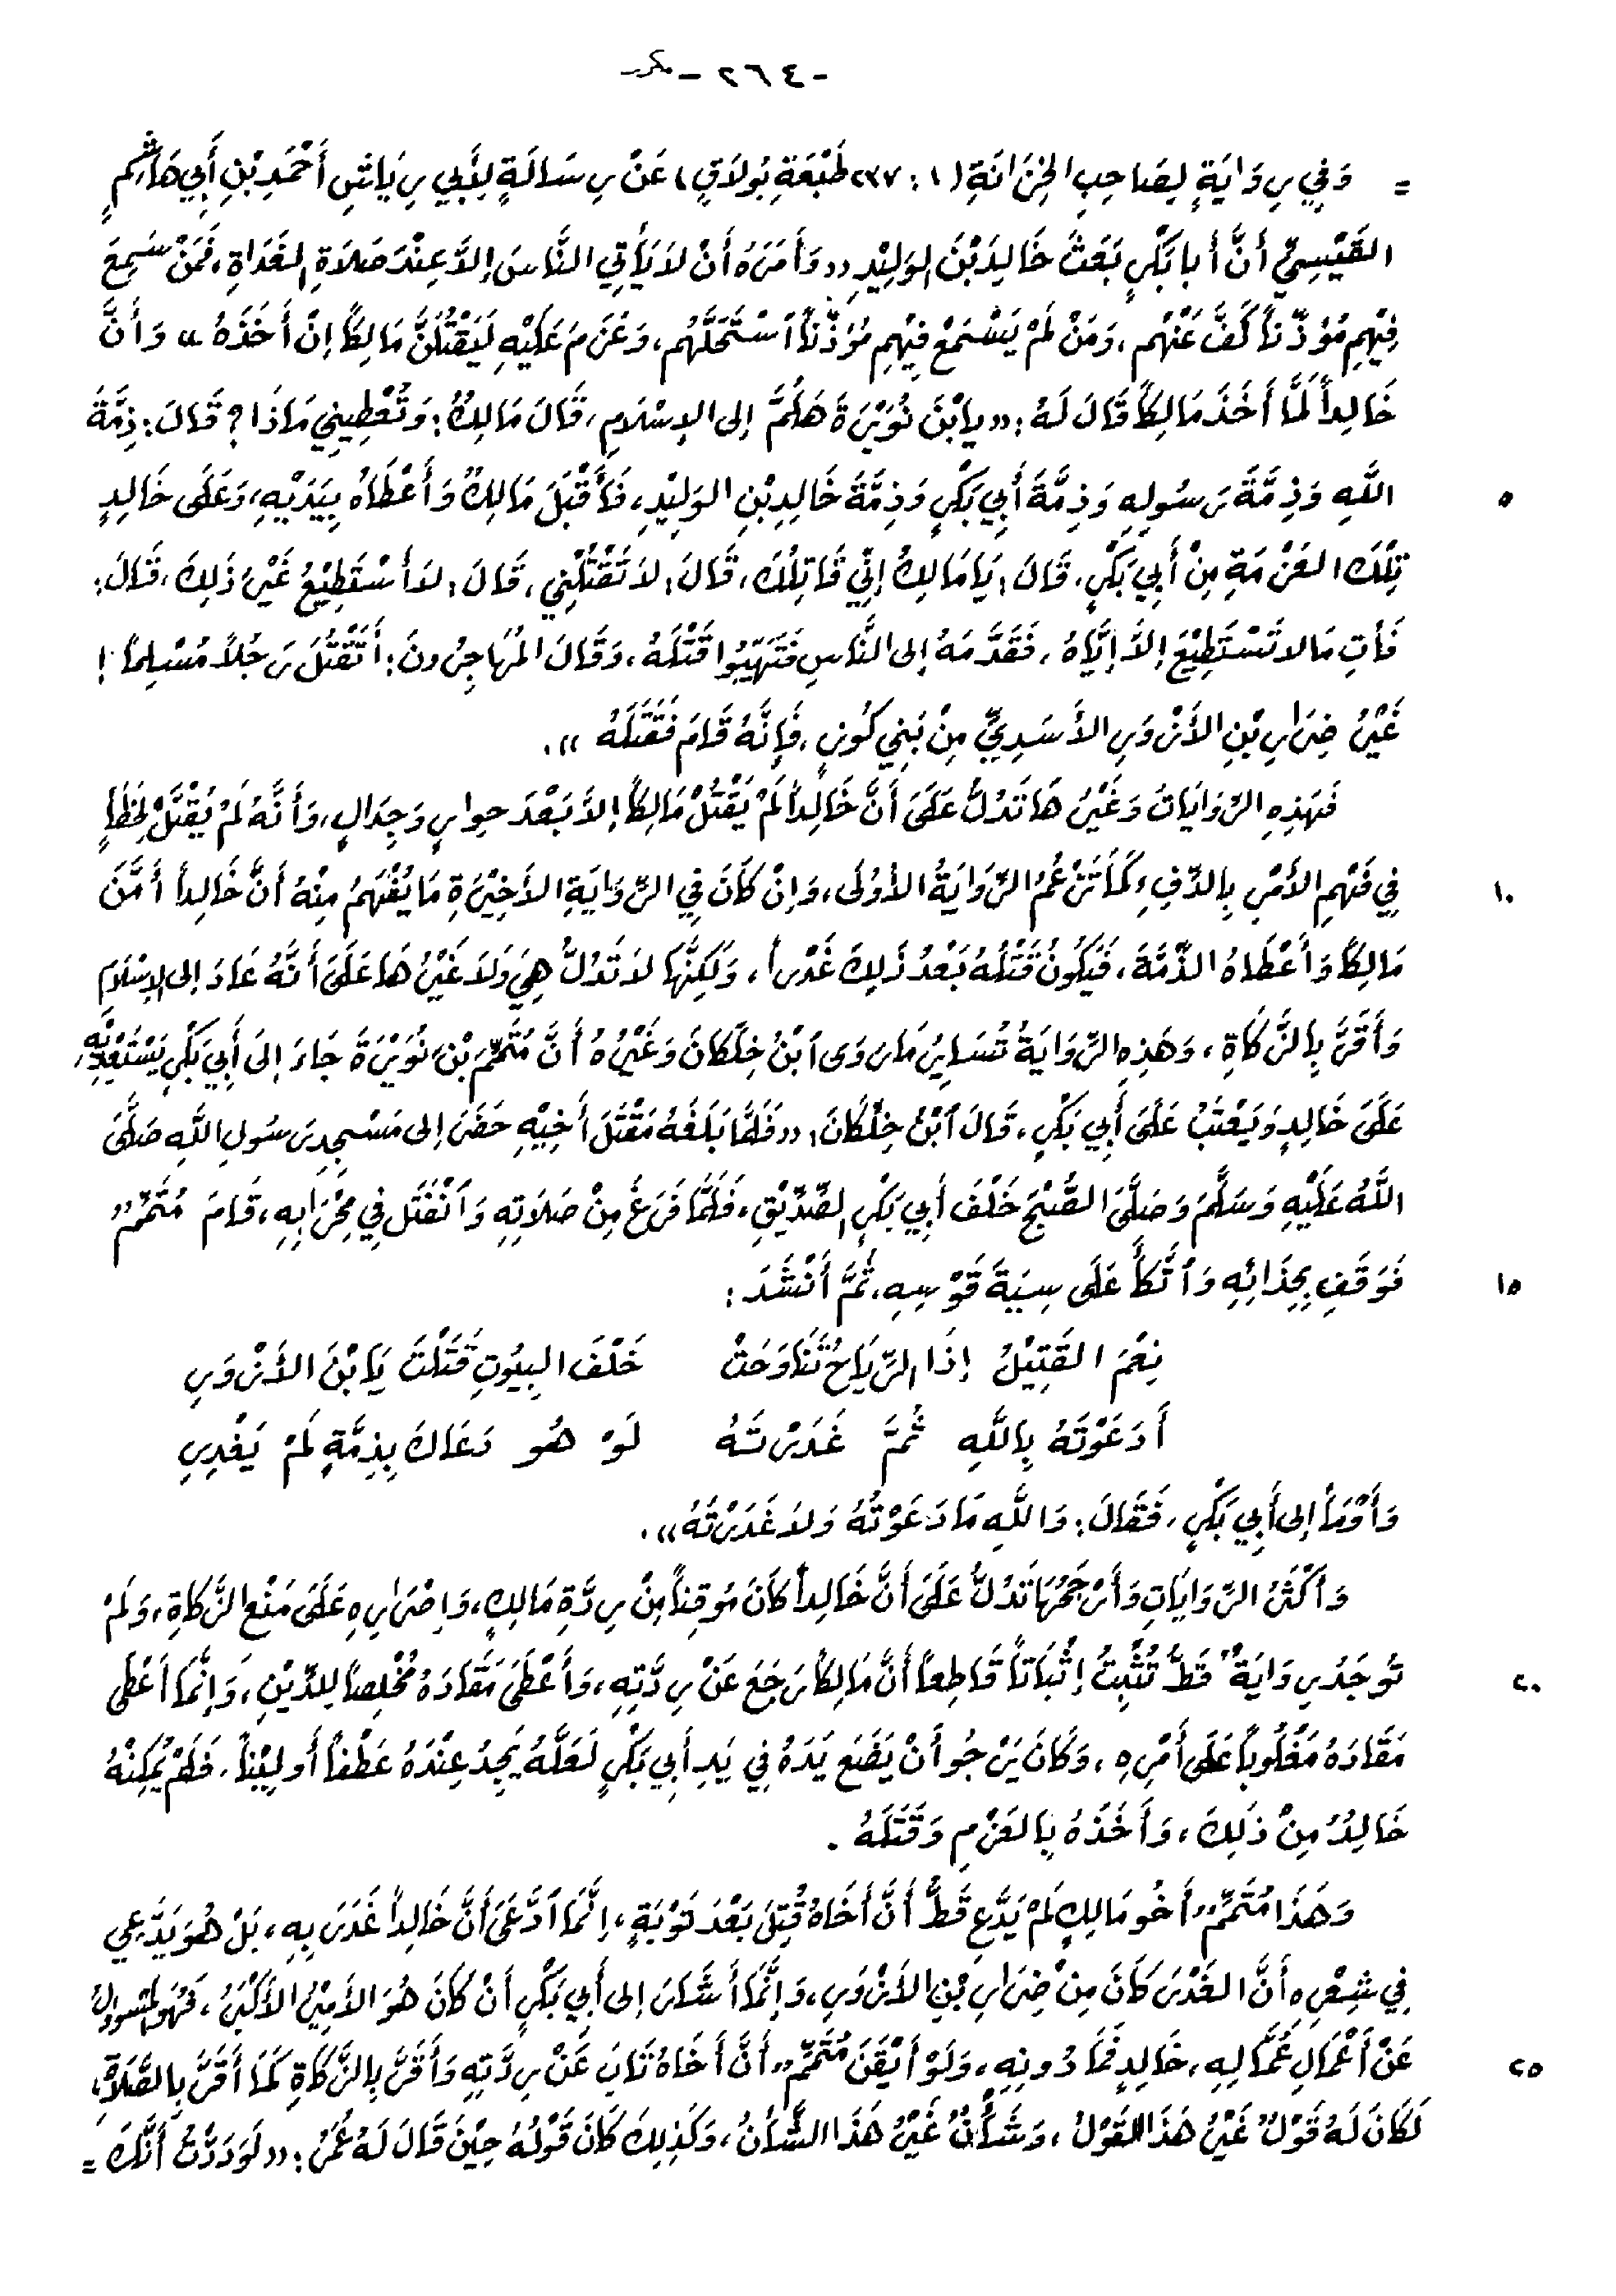 - ٢٦٤ - مكرر
= وَفِي رِوَايَةٍ لِصَاحِبِ الخِزَانَةِ (١ : ٢٣٧ طَبْعَةِ بُولَاقٍ) عَنْ رِسَالَةٍ لِأَبِي رِيَاشٍ أَحْمَدِ بْنِ أَبِي هَاشِمٍ
القَيْسِيِّ أَنَّ أَبا بَكْرٍ بَعَثَ خَالِدَ بْنَ الوَلِيْدِ «وَأَمَرَهُ أَنْ لاَ يَأْتِي النَّاسَ إِلاَّ عِنْدَ صَلاَةِ الغَدَاةِ، فَمَنْ سَمِعَ
فِيْهِم مُؤَذِّناً كَفَّ عَنْهُم، وَمَنْ لَمْ يَسْمَعْ فِيْهِم مُؤَذِّناً ٱسْتَحَلَّهُم، وَعَزَمَ عَلَيْهِ لَيَقْتُلَنَّ مَالِكاً إِنْ أَخَذَهُ» وَأَنَّ
خَالِداً لَمَّا أَخَذَ مَالِكاً قَالَ لَهُ : «يا بْنَ نُوَيْرَةَ هَلُمَّ إلى الإِسْلَامِ، قَالَ مَالِكٌ: وَتُعْطِينِي مَاذَا؟ قَالَ: ذِمَّةَ
اللَّهِ وَذِمَّةَ رَسُولِهِ وَذِمَّةَ أَبِي بَكْرٍ وَذِمَّةَ خَالِدِ بْنِ الوَلِيْدِ، فَأَقْبَلَ مَالِكٌ وَأَعْطَاهُ بِيَدَيْهِ، وَعَلَى خَالِدٍ ٥
تِلْكَ العَزْمَةِ مِنْ أَبِي بَكْرٍ، قَالَ: يَا مَالِكُ إِنِّي قَاتِلُكَ، قَالَ: لاَ تَقْتُلْنِي، قَالَ: لاَ أَسْتَطِيْعُ غَيْرَ ذَلِكَ، قَالَ:
فَأْتِ مَا لا تَسْتَطِيْعَ إِلاَّ إِيَّاهُ، فَقَدَّمَهُ إلى النَّاسِ فَتَهَيَّبُوا قَتْلَهُ، وَقَالَ المُهَاجِرُونَ: أَتَقْتُلَ رَجُلاً مُسْلِماً !
غَيْرُ ضِرَارِ بْنِ الأَزْوَرِ الأَسَدِيِّ مِنْ بَنِي كُوزٍ، فَإِنَّهُ قَامَ فَقَتَلَهُ ».
فَهَذِهِ الرِّوَايَاتُ وَغَيْرُهَا تَدُلُّ عَلَىَ أَنَّ خَالِداً لَمْ يَقْتُلْ مَالِكاً إِلاَّ بَعْدَ حِوارٍ وَجِدَالٍ، وَأَنَّهُ لَمْ يُقْتَلْ لِخَطَأٍ
فِي فَهْمِ الأَمْرِ بِالدِّفءِ كَمَا تَزْعُمُ الرِّوَايَةُ الأُوْلَى، وَإِنْ كَانَ فِي الرِّوَايَةِ الأَخِيْرَةِ مَا يُفْهَمُ مِنْهُ أَنَّ خَالِداً أَمَّنَ ١٠
مَالِكاً وَأَعْطَاهُ الذِّمَّةَ، فَيَكُونُ قَتْلُهُ بَعْدُ ذَلِكَ غَدْراً، وَلَكِنَّهَا لاَ تَدُلُّ هِيَ وَلاَ غَيْرُهَا عَلَىَ أَنَّهُ عَادَ إلى الإِسْلَامِ
وَأَقَرَّ بِالزَّكَاةِ، وَهَذِهِ الرِّوَايَةُ تُسَايِرُ مَا رَوَى ٱبْنُ خِلِّكَانَ وَغَيْرُهُ أَنَّ مُتَمِّمَ بْنَ نُوَيْرَةَ جَاءَ إِلَى أَبِي بَكْرٍ يَسْتَعْدِيْهِ،
عَلَىَ خَالِدٍ وَيَعْتَبُ عَلَىَ أَبِي بَكْرٍ، قَالَ ٱبْنُ خِلِّكَانَ: «فَلَمَّا بَلَغَهُ مَقْتَلَ أَخِيْهِ حَضَرَ إلى مَسْجِدِ رَسُولِ اللَّهِ صَلَّىَ
اللَّهُ عَلَيْهِ وَسَلَّمَ وَصَلَّىَ الصُّبْحَ خَلْفَ أَبِي بَكْرٍ الصِّدِّيْقِ، فَلَمَّا فَرَغَ مِنْ صَلَاتِهِ وَٱنْفَتَل فِي مِحْرَابِهِ، قَامَ مُتَمِّمٌ
فَوَقَفِ بِحِذَائِهِ وَٱتَّكَأَ عَلَى سِيَةَ قَوْسِهِ، ثُمَّ أَنْشَدَ : ١٥
نِعْمَ القَتِيْلُ إذَا الرِّيَاحُ تَنَاوَحَتْ خَلْفَ البِيُوتِ قَتَلْتَ يَا بْنَ الأَزْوَرِ
أَدَعَوْتَهُ بِاللَّهِ ثُمَّ غَدَرْتَهُ لَوْ هُو دَعَاكَ بِذِمَّةٍ لَمْ يَغْدِرِ
وَأَوْمَأَ إلى أَبِي بَكْرٍ، فَقَالَ: وَاللَّهِ مَا دَعَوْتُهُ وَلاَ غَدَرْتُهُ».
وَأَكْثَرُ الرِّوَايَاتِ وَأَرْجَحُهَا تَدُلُّ عَلَىَ أَنَّ خَالِداً كَانَ مُوقِناً مِنْ رِدَّةِ مَالِكٍ، وَإِصْرَارِهِ عَلَىَ مَنْعِ الزَّكَاةِ، وَلَمْ
تُوجَدْ رِوَايَةٌ قَطُّ تُثْبِتُ إِثْبَاتاً قَاطِعاً أَنَّ مَالِكاً رَجَعَ عَنْ رِدَّتِهِ، وَأَعْطَىَ مَقَادَهُ مُخْلِصاً لِلدِّيْنِ، وَإِنَّمَا أَعْطَى ٢٠
مَقَادَهُ مَغْلُوباً عَلَى أَمْرِهِ، وَكَانَ يَرْجُو أَنْ يَضَعَ يَدَهُ فِي يَدِ أَبِي بَكْرٍ لَعَلَّهُ يَجِدُ عِنْدَهُ عَطْفاً أَو لِيْناً، فَلَمْ يُمْكِنْهُ
خَالِدٌ مِنْ ذَلِكَ، وَأَخَذَهُ بِالعَزْمِ وَقَتَلَهُ .
وَهَذَا مُتَمِّمٌ أَخُو مَالِكٍ لَمْ يَدَّعِ قَطُّ أَنَّ أَخَاهُ قُتِلَ بَعْدَ تَوْبَةٍ، إِنَّمَا ٱدَّعَىَ أَنَّ خَالِداً غَدَرَ بِهِ، بَلْ هُوَ يَدَّعِي
فِي شِعْرِهِ أَنَّ الغَدْرَ كَانَ مِنْ ضِرَارِ بْنِ الأَزْوَرِ، وَإِنَّمَا أَشَارَ إلى أَبِي بَكْرٍ أَنْ كَانَ هُوَ الأَمِيْرُ الأَكْبَرُ، فَهُوَ المَسْوولُ
عَنْ أَعْمَالِ عُمَّالِهِ، خَالِدٍ فَمَا دُونِهِ، وَلَوْ أَيْقَنَ مُتَمِّمٌ أَنَّ أَخَاهُ تَابَ عَنْ رِدَّتِهِ وَأَقَرَّ بِالزَّكَاةِ كَمَا أَقَرَّ بِالصَّلَاةِ، ٢٥
لَكَانَ لَهُ قَوْلٌ غَيْرُ هَذَا القَوْلُ، وَشَأْنٌ غَيْرُ هَذَا الشَّأنُ، وَكَذِلِكَ كَانَ قَوْلُهُ حِيْنَ قَالَ لَهُ عُمَرُ: «لَوَدَدْتُ أَنَّكَ =